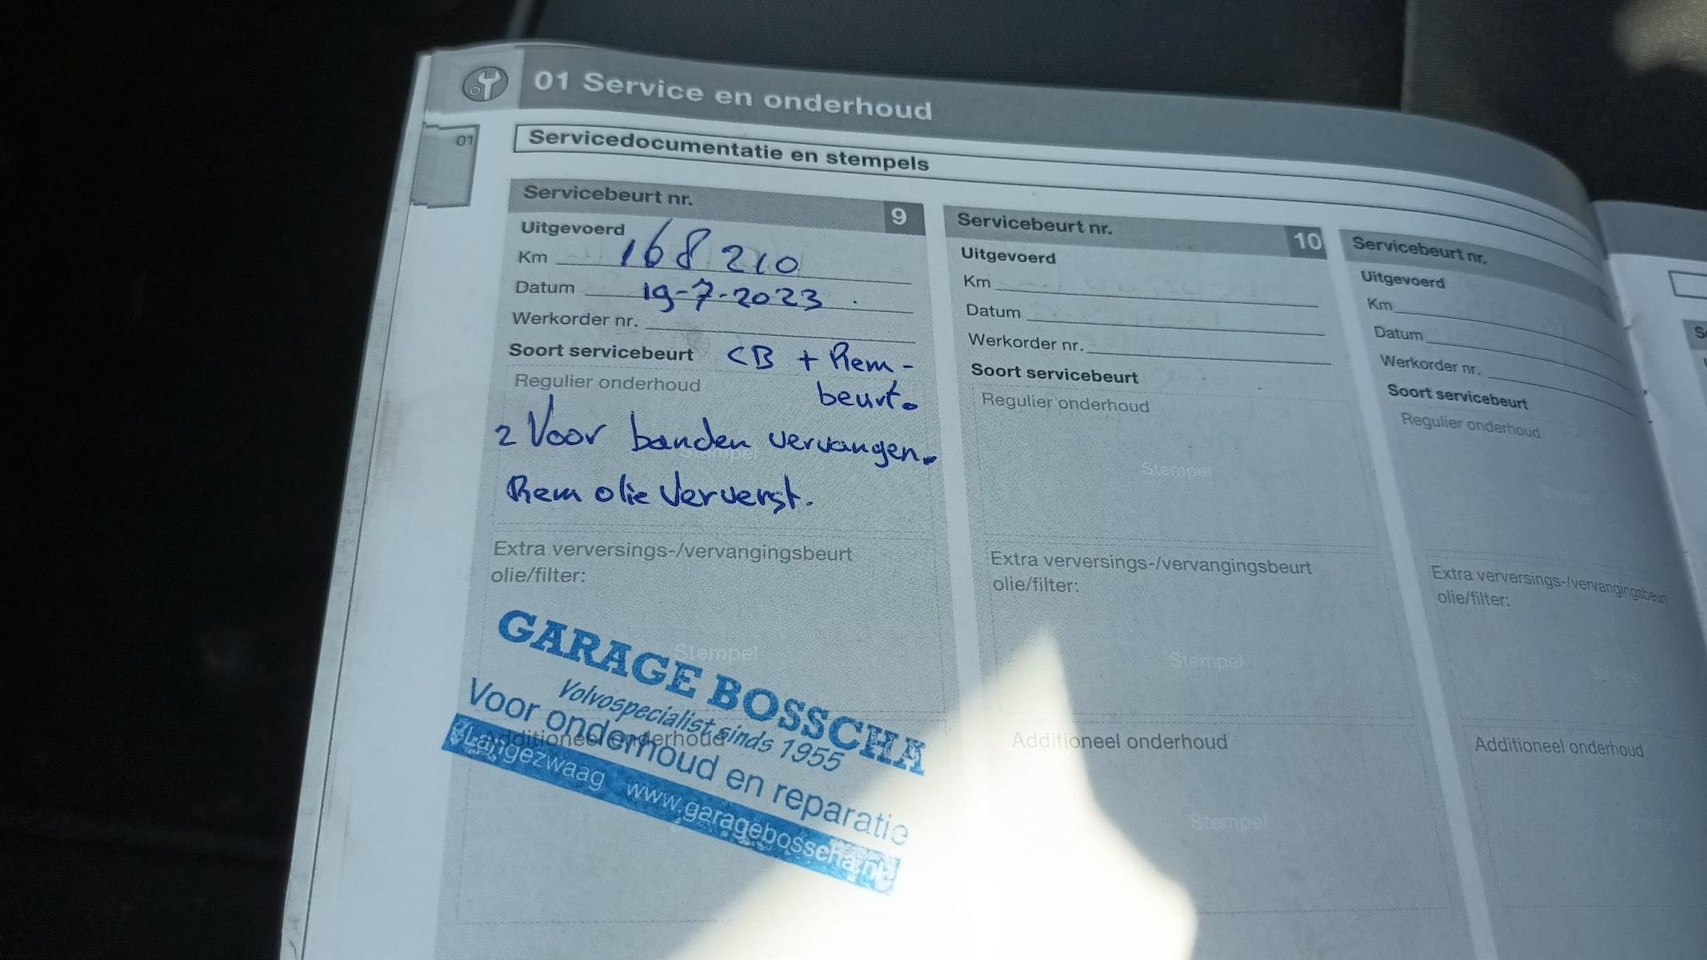 01 Service en onderhoud
01
Servicedocumentatie en stempels
Servicebeurt nr. 9
Uitgevoerd
Km 168 210
Datum 19-7-2023.
Werkorder nr.
Soort servicebeurt CB + Rem-
Regulier onderhoud beurt.
2 Voor banden vervangen.
Stempel
Rem olie Ververst.
Extra verversings-/vervangingsbeurt
olie/filter:
Stempel
GARAGE BOSSCHA
Volvospecialist sinds 1955
Voor onderhoud en reparatie
Additioneel onderhoud
Langezwaag www.garagebosscha.nl
Servicebeurt nr. 10
Uitgevoerd
Km
Datum
Werkorder nr.
Soort servicebeurt
Regulier onderhoud
Stempel
Extra verversings-/vervangingsbeurt
olie/filter:
Stempel
Additioneel onderhoud
Stempel
Servicebeurt nr.
Uitgevoerd
Km
Datum
Werkorder nr.
Soort servicebeurt
Regulier onderhoud
Extra verversings-/vervangingsbeurt
olie/filter:
Additioneel onderhoud